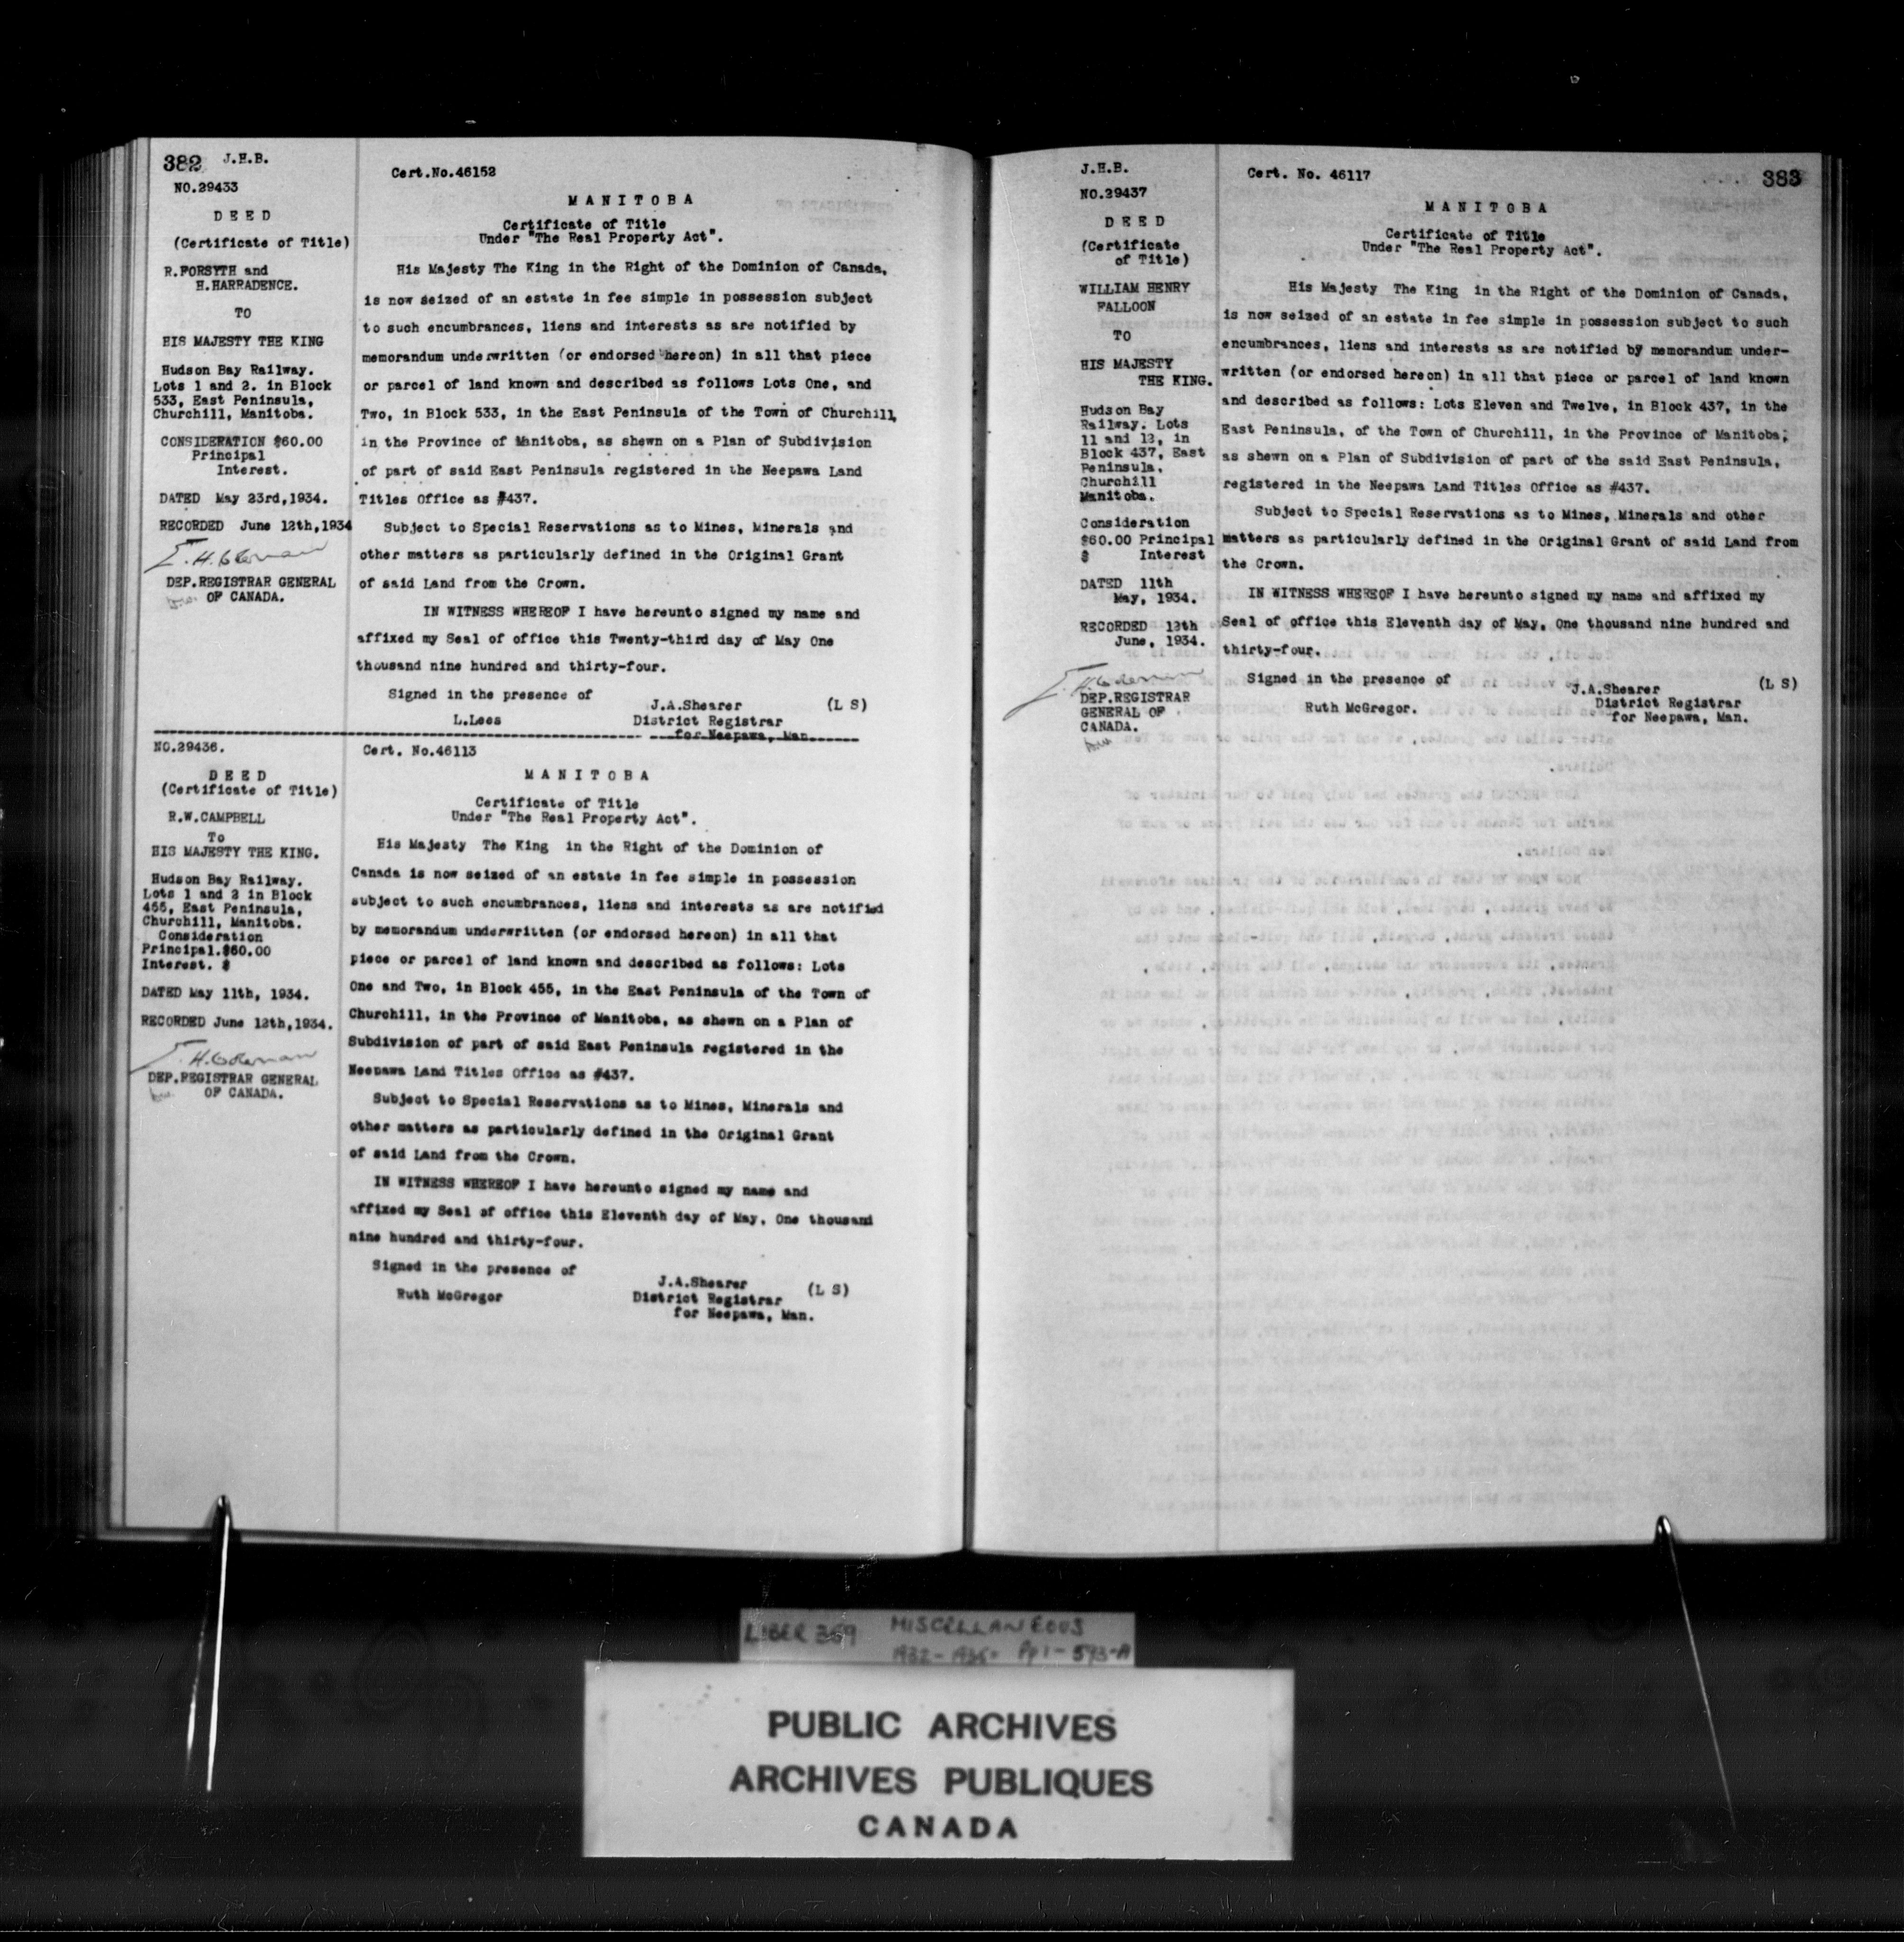 382 J.H.B.
NO.29433
D E E D
(Certificate of Title)
R.FORSYTH and
H.HARRADENCE.
TO
HIS MAJESTY THE KING
Hudson Bay Railway.
Lots 1 and 2. in Block
533, East Peninsula,
Churchill, Manitoba.
CONSIDERATION $60.00
Principal
Interest.
DATED May 23rd,1934.
RECORDED June 12th,1934
DEP.REGISTRAR GENERAL
OF CANADA.
Cert.No.46152
M A N I T O B A
Certificate of Title
Under "The Real Property Act".
His Majesty The King in the Right of the Dominion of Canada,
is now seized of an estate in fee simple in possession subject
to such encumbrances, liens and interests as are notified by
memorandum underwritten (or endorsed hereon) in all that piece
or parcel of land known and described as follows Lots One, and
Two, in Block 533, in the East Peninsula of the Town of Churchill,
in the Province of Manitoba, as shewn on a Plan of Subdivision
of part of said East Peninsula registered in the Neepawa Land
Titles Office as #437.
Subject to Special Reservations as to Mines, Minerals and
other matters as particularly defined in the Original Grant
of said Land from the Crown.
IN WITNESS WHEREOF I have hereunto signed my name and
affixed my Seal of office this Twenty-third day of May One
thousand nine hundred and thirty-four.
Signed in the presence of
J.A.Shearer (L S)
L.Lees District Registrar
for Neepawa, Man.
NO.29436.
D E E D
(Certificate of Title)
R.W.CAMPBELL
To
HIS MAJESTY THE KING.
Hudson Bay Railway.
Lots 1 and 2 in Block
455, East Peninsula,
Churchill, Manitoba.
Consideration
Principal.$60.00
Interest. $
DATED May 11th, 1934.
RECORDED June 12th,1934.
DEP.REGISTRAR GENERAL
OF CANADA.
Cert. No.46113
M A N I T O B A
Certificate of Title
Under "The Real Property Act".
His Majesty The King in the Right of the Dominion of
Canada is now seized of an estate in fee simple in possession
subject to such encumbrances, liens and interests as are notified
by memorandum underwritten (or endorsed hereon) in all that
piece or parcel of land known and described as follows: Lots
One and Two, in Block 455, in the East Peninsula of the Town of
Churchill, in the Province of Manitoba, as shewn on a Plan of
Subdivision of part of said East Peninsula registered in the
Neepawa Land Titles Office as #437.
Subject to Special Reservations as to Mines, Minerals and
other matters as particularly defined in the Original Grant
of said Land from the Crown.
IN WITNESS WHEREOF I have hereunto signed my name and
affixed my Seal of office this Eleventh day of May, One thousand
nine hundred and thirty-four.
Signed in the presence of
J.A.Shearer (L S)
Ruth McGregor District Registrar
for Neepawa, Man.
J.H.B.
NO.29437
D E E D
(Certificate
of Title)
WILLIAM HENRY
FALLOON
TO
HIS MAJESTY
THE KING.
Hudson Bay
Railway. Lots
11 and 12, in
Block 437, East
Peninsula,
Churchill
Manitoba.
Consideration
$60.00 Principal
$ Interest
DATED 11th
May, 1934.
RECORDED 12th
June, 1934.
DEP.REGISTRAR
GENERAL OF
CANADA.
Cert. No. 46117 383
M A N I T O B A
Certificate of Title
Under "The Real Property Act".
His Majesty The King in the Right of the Dominion of Canada,
is now seized of an estate in fee simple in possession subject to such
encumbrances, liens and interests as are notified by memorandum under-
written (or endorsed hereon) in all that piece or parcel of land known
and described as follows: Lots Eleven and Twelve, in Block 437, in the
East Peninsula, of the Town of Churchill, in the Province of Manitoba,
as shewn on a Plan of Subdivision of part of the said East Peninsula,
registered in the Neepawa Land Titles Office as #437.
Subject to Special Reservations as to Mines, Minerals and other
matters as particularly defined in the Original Grant of said Land from
the Crown.
IN WITNESS WHEREOF I have hereunto signed my name and affixed my
Seal of office this Eleventh day of May, One thousand nine hundred and
thirty-four.
Signed in the presence of
J.A.Shearer (L S)
Ruth McGregor. District Registrar
for Neepawa, Man.
LIBER 369 MISCELLANEOUS
1932-1935 Pp 1-593-A
PUBLIC ARCHIVES
ARCHIVES PUBLIQUES
CANADA